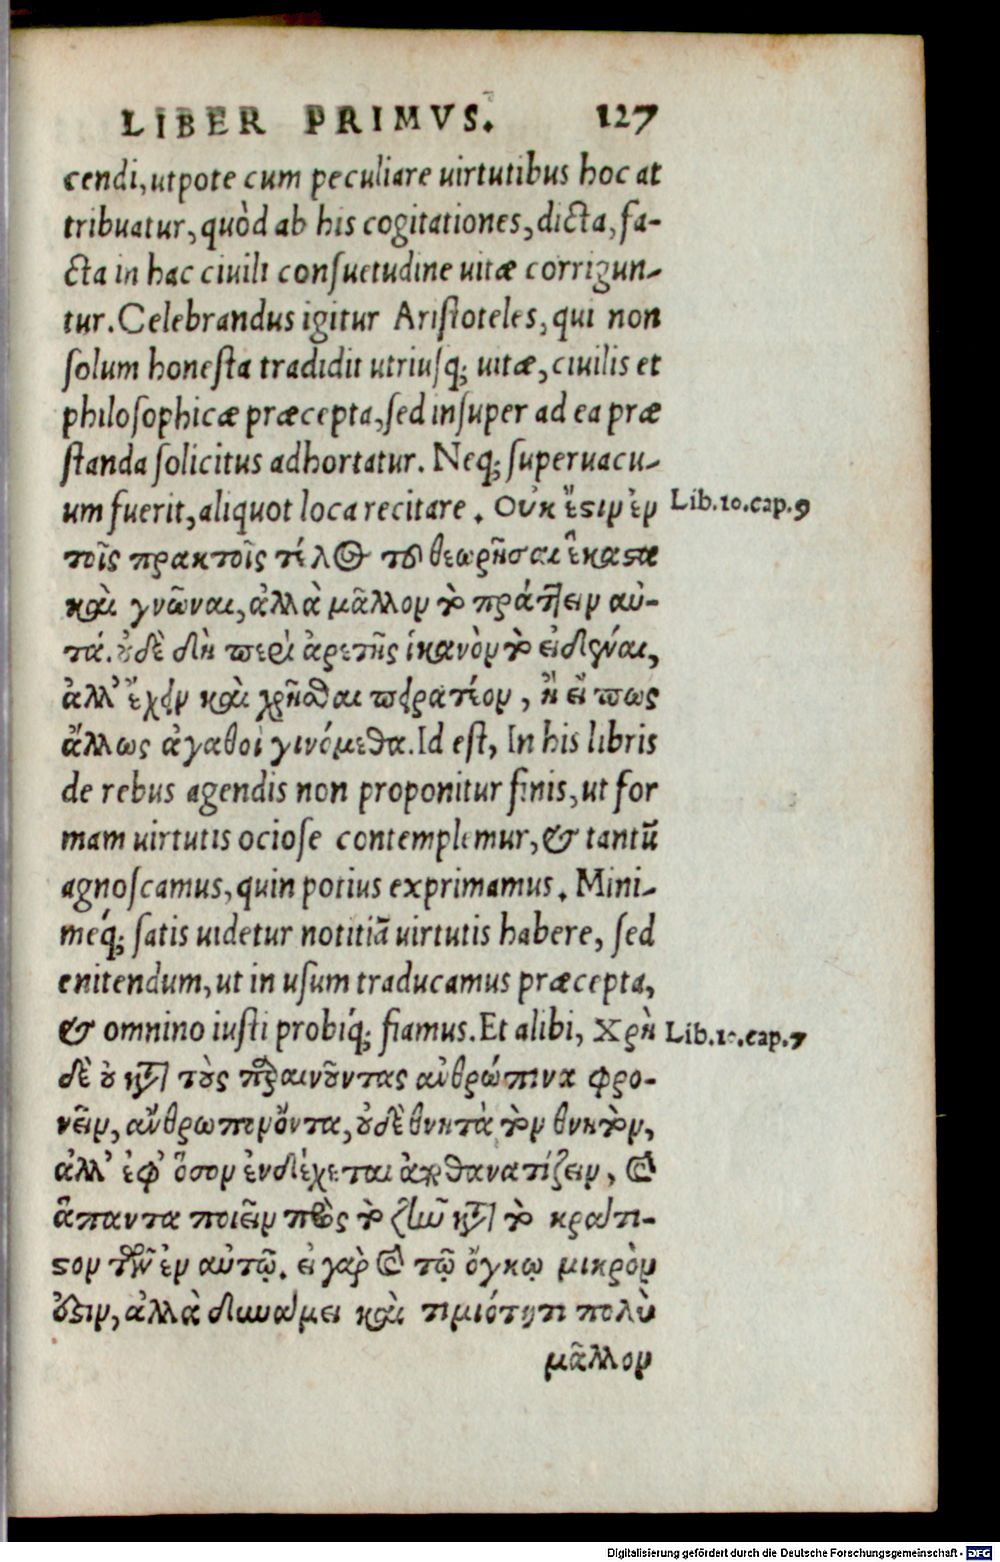 LIBER PRIMVS. 127
cendi, utpote cum peculiare uirtutibus hoc at
tribuatur, quòd ab his cogitationes, dicta, fa-
cta in hac ciuili consuetudine uitæ corrigun-
tur. Celebrandus igitur Aristoteles, qui non
solum honesta tradidit utriusq; uitæ, ciuilis et
philosophicæ præcepta, sed insuper ad ea præ
standa solicitus adhortatur. Neq; superuacu-
um fuerit, aliquot loca recitare. Οὐκ ἔστιν ἐν
Lib.10.cap.9
τοῖς πρακτοῖς τέλος τὸ θεωρῆσαι ἕκαστα
καὶ γνῶναι, ἀλλὰ μᾶλλον τὸ πράττειν αὐ-
τά. οὐδὲ δὴ περὶ ἀρετῆς ἱκανὸν τὸ εἰδέναι,
ἀλλ’ ἔχειν καὶ χρῆσθαι πειρατέον, ἢ εἴ πως
ἄλλως ἀγαθοὶ γινόμεθα. Id est, In his libris
de rebus agendis non proponitur finis, ut for
mam uirtutis ociose contemplemur, & tantũ
agnoscamus, quin potius exprimamus. Mini-
meq́; satis uidetur notitiã uirtutis habere, sed
enitendum, ut in usum traducamus præcepta,
& omnino iusti probiq́; fiamus. Et alibi, Χρὴ
Lib.10.cap.7
δὲ οὐ κατὰ τοὺς παραινοῦντας ἀνθρώπινα φρο-
νεῖν, ἄνθρωπον ὄντα, οὐδὲ θνητὰ τὸν θνητὸν,
ἀλλ’ ἐφ’ ὅσον ἐνδέχεται ἀπαθανατίζειν, καὶ
ἅπαντα ποιεῖν πρὸς τὸ ζῆν κατὰ τὸ κράτι-
στον τῶν ἐν αὐτῷ. εἰ γὰρ καὶ τῷ ὄγκῳ μικρὸν
ἐστιν, ἀλλὰ δυνάμει καὶ τιμιότητι πολὺ
μᾶλλον
Digitalisierung gefördert durch die Deutsche Forschungsgemeinschaft - DFG